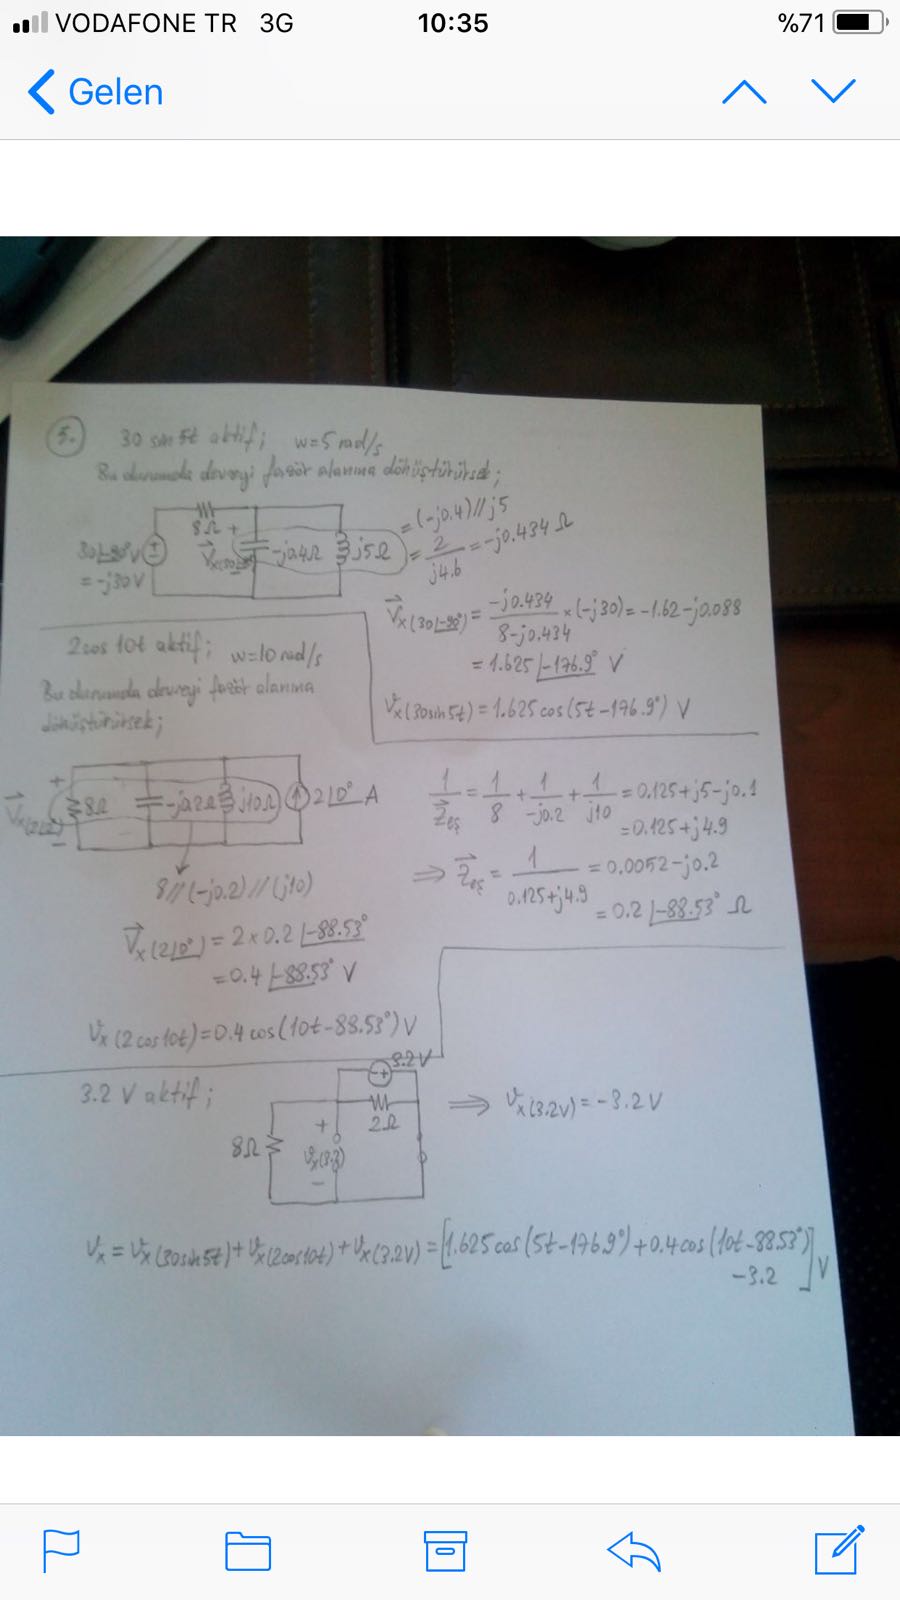 VODAFONE TR 3G 10:35 %71
Gelen
5. 30 sin 5t aktif; w=5 rad/s
Bu durumda devreyi fazör alanına dönüştürürsek;
8Ω + = (-j0.4)//j5
30∠-90° V = -j30 V
-j0.4Ω j5Ω = 2/j4.6 = -j0.434 Ω
Vx(30∠-90°) = -j0.434/8-j0.434 × (-j30) = -1.62-j0.088
= 1.625∠-176.9° V
Vx(30sin5t) = 1.625cos(5t-176.9°) V
2cos 10t aktif; w=10 rad/s
Bu durumda devreyi fazör alanına
dönüştürürsek;
+
8Ω -j0.2Ω j10Ω 2∠0° A
-
8//(-j0.2)//(j10)
1/Zeş = 1/8 + 1/-j0.2 + 1/j10 = 0.125+j5-j0.1
= 0.125+j4.9
⇒ Zeş = 1/0.125+j4.9 = 0.0052-j0.2
= 0.2∠-88.53° Ω
Vx(2∠0°) = 2×0.2∠-88.53°
= 0.4∠-88.53° V
Vx(2cos10t) = 0.4cos(10t-88.53°) V
3.2 V aktif;
3.2V
- +
2Ω
8Ω + -
⇒ Vx(3.2V) = -3.2 V
Vx = Vx(30sin5t) + Vx(2cos10t) + Vx(3.2V) = [1.625cos(5t-176.9°)+0.4cos(10t-88.53°)
-3.2] V